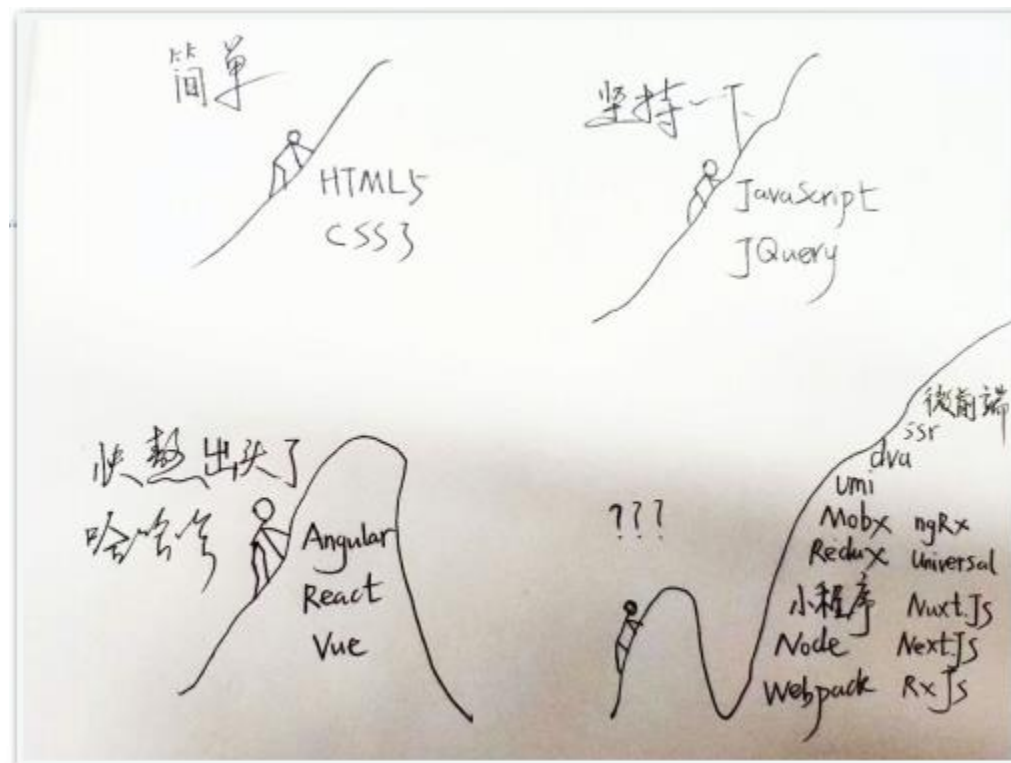 简单
HTML5
CSS3
坚持一下
JavaScript
JQuery
快熬出头了
哈哈哈
Angular
React
Vue
???
微前端
ssr
dva
umi
Mobx ngRx
Redux Universal
小程序 Nuxt.Js
Node Next.JS
Webpack RxJs